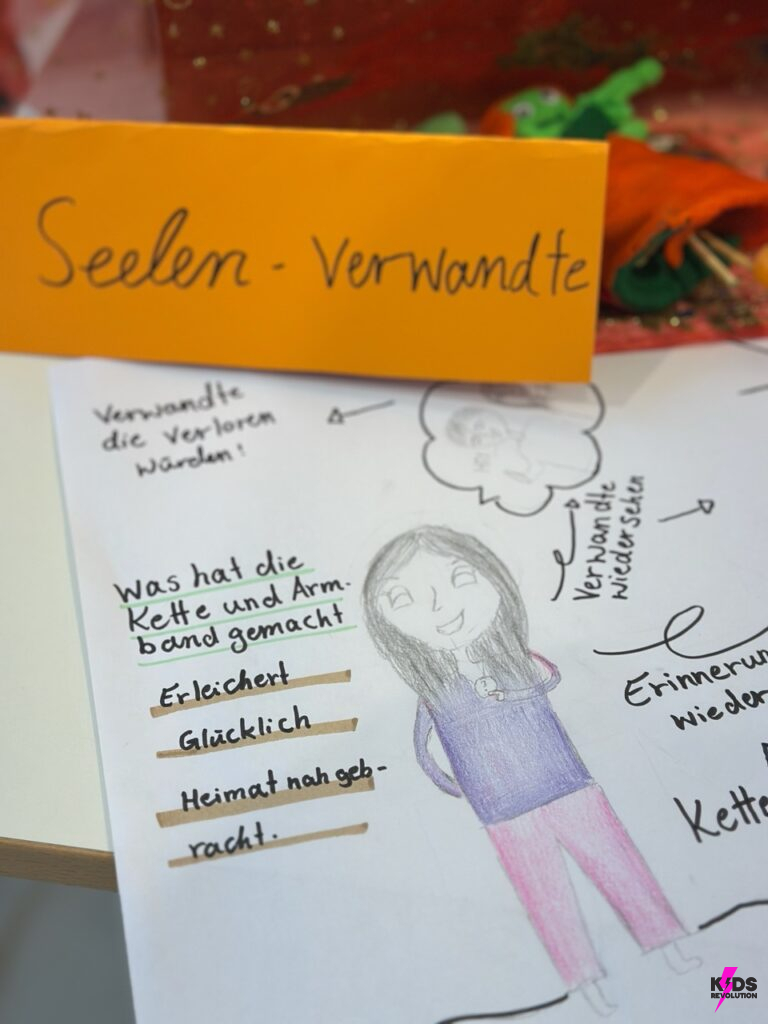 Seelen - Verwandte
Verwandte
die verloren
würden!
Verwandte
wiedersehen
Was hat die
Kette und Arm-
band gemacht
Erleichert
Glücklich
Heimat nah geb-
racht.
Erinnerun
wieder
Kette
KIDS
REVOLUTION